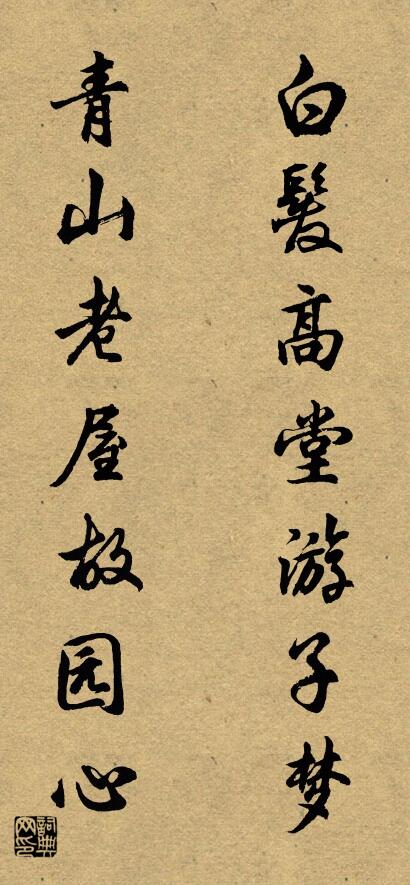 白髮高堂游子梦
青山老屋故园心
詞典网印